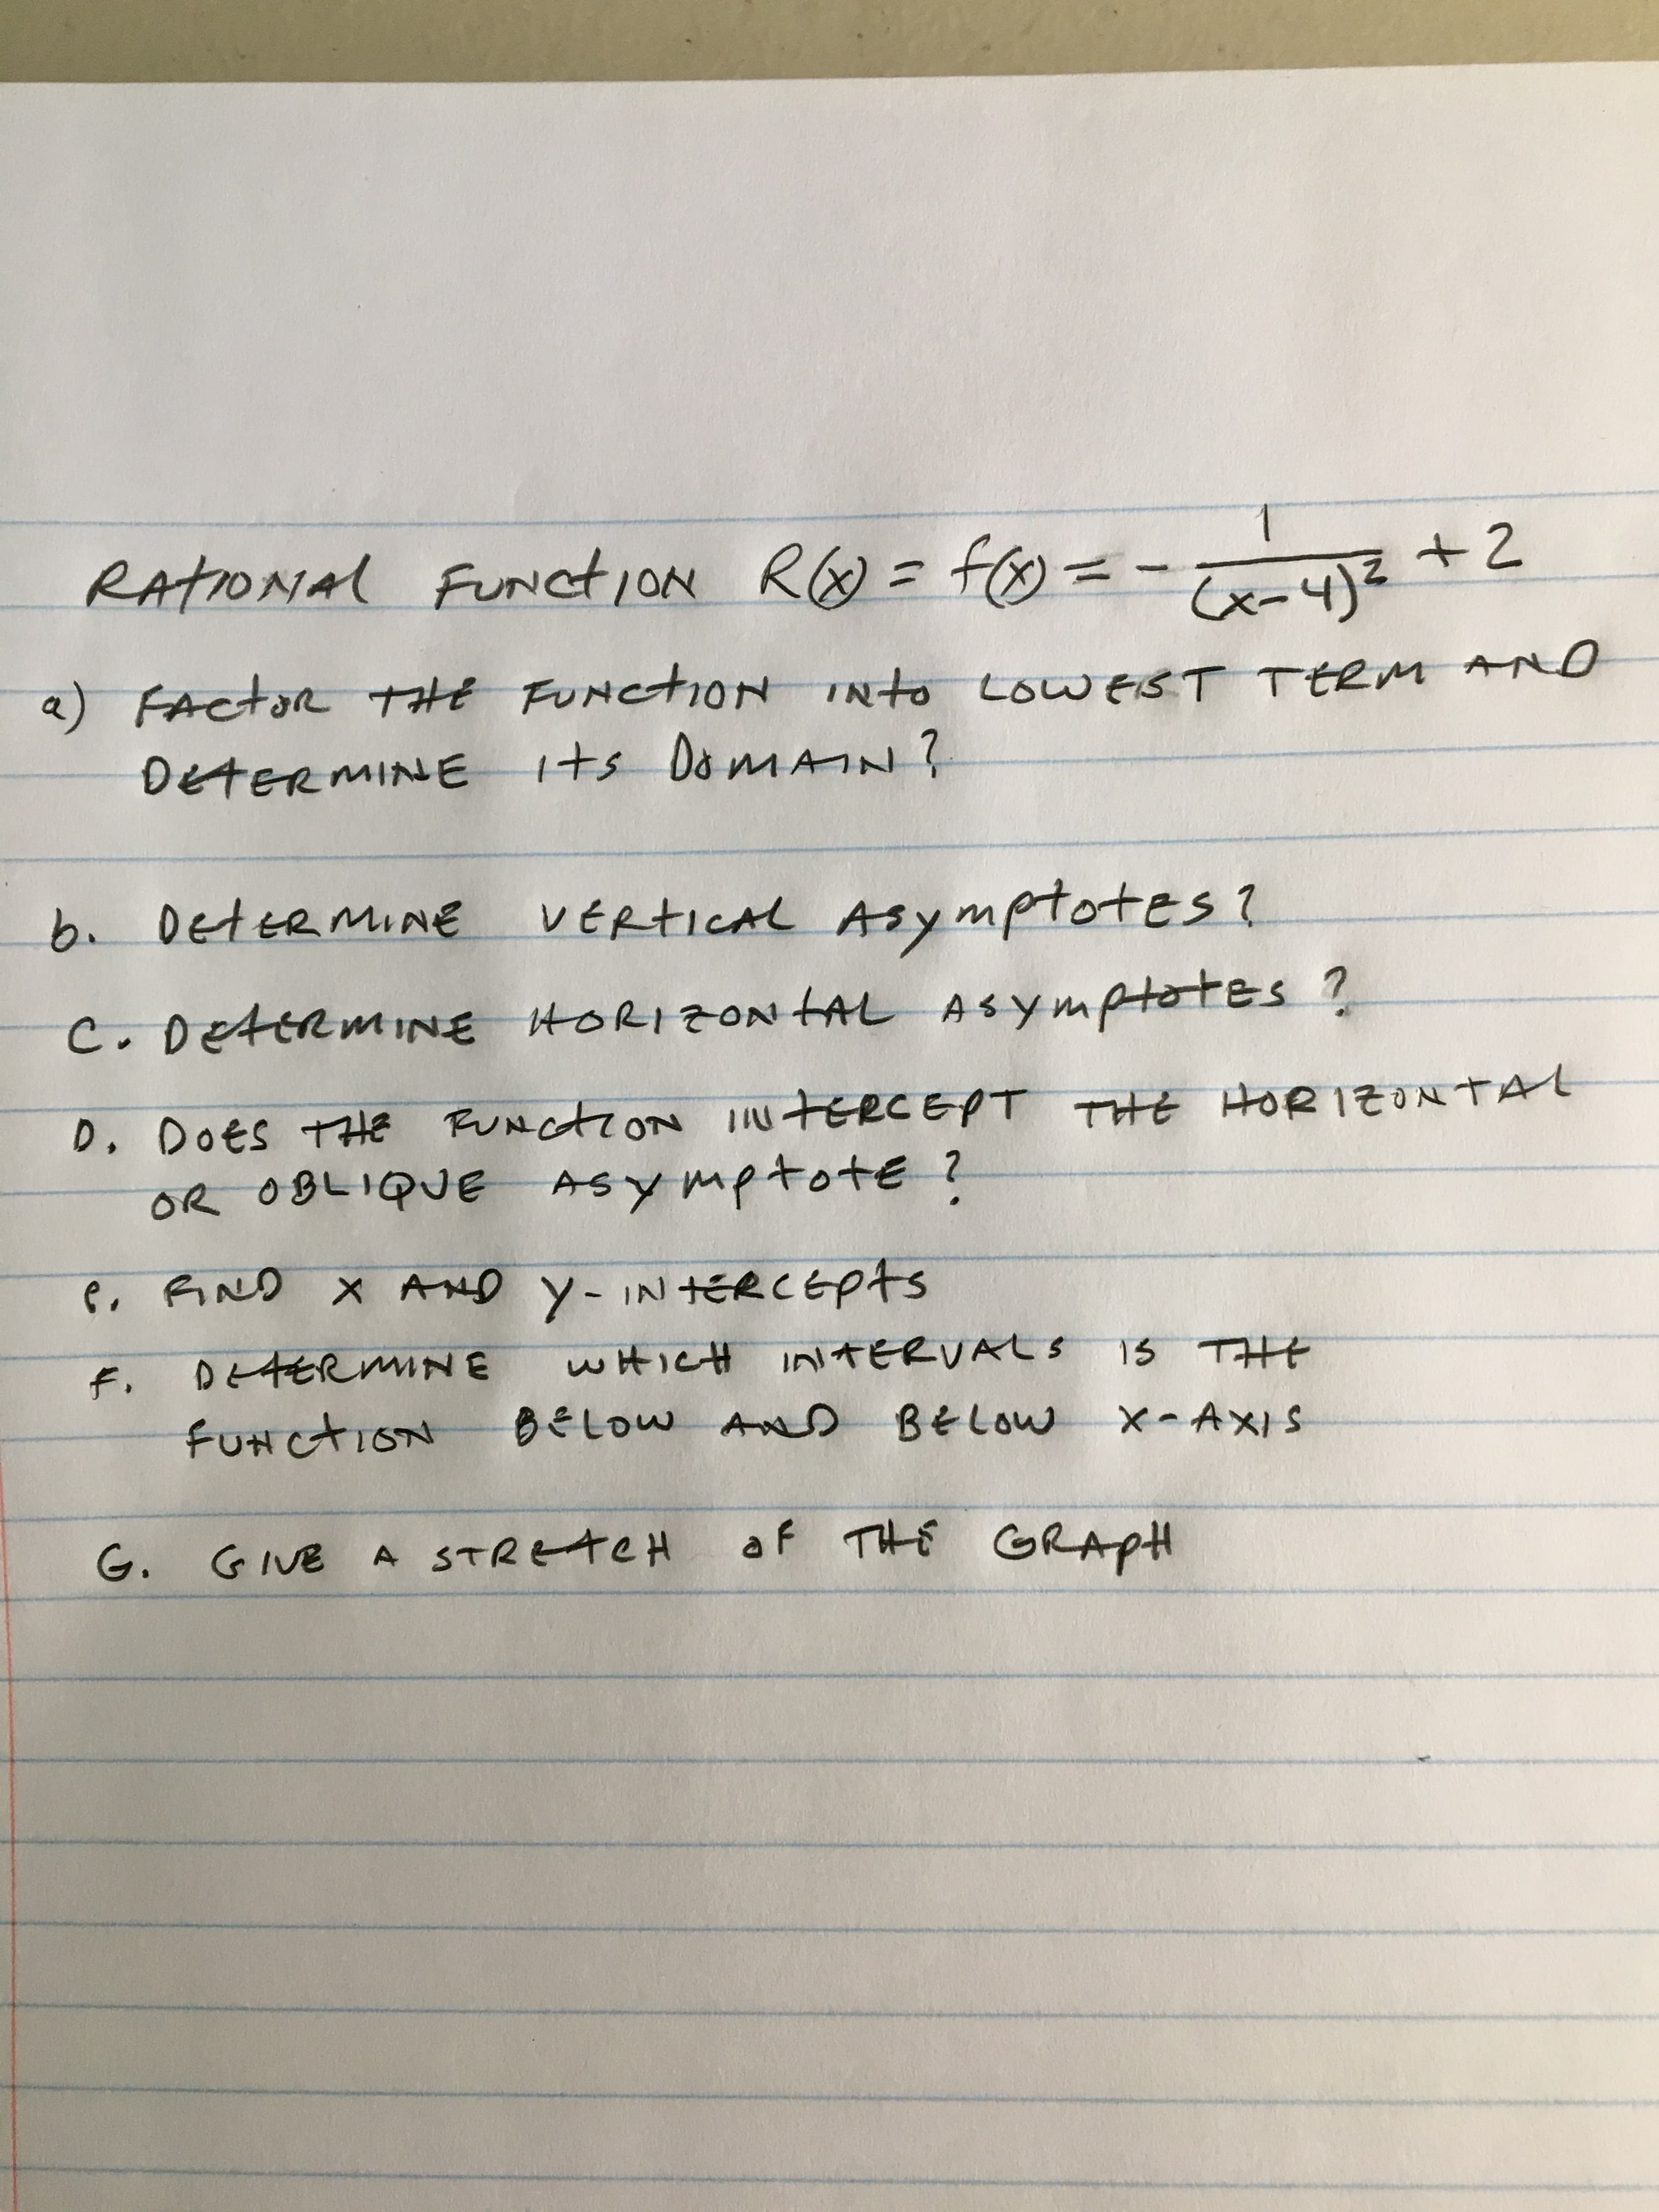 RATIONAL FUNCTION R(x) = f(x) = - 1/(x-4)² + 2
a) FACTOR THE FUNCTION INTO LOWEST TERM AND
DETERMINE ITS DOMAIN?
b. DETERMINE VERTICAL ASYMPTOTES?
C. DETERMINE HORIZONTAL ASYMPTOTES?
D. DOES THE FUNCTION INTERCEPT THE HORIZONTAL
OR OBLIQUE ASYMPTOTE?
e. FIND X AND Y-INTERCEPTS
F. DETERMINE WHICH INTERVALS IS THE
FUNCTION BELOW AND BELOW X-AXIS
G. GIVE A STRETCH OF THE GRAPH